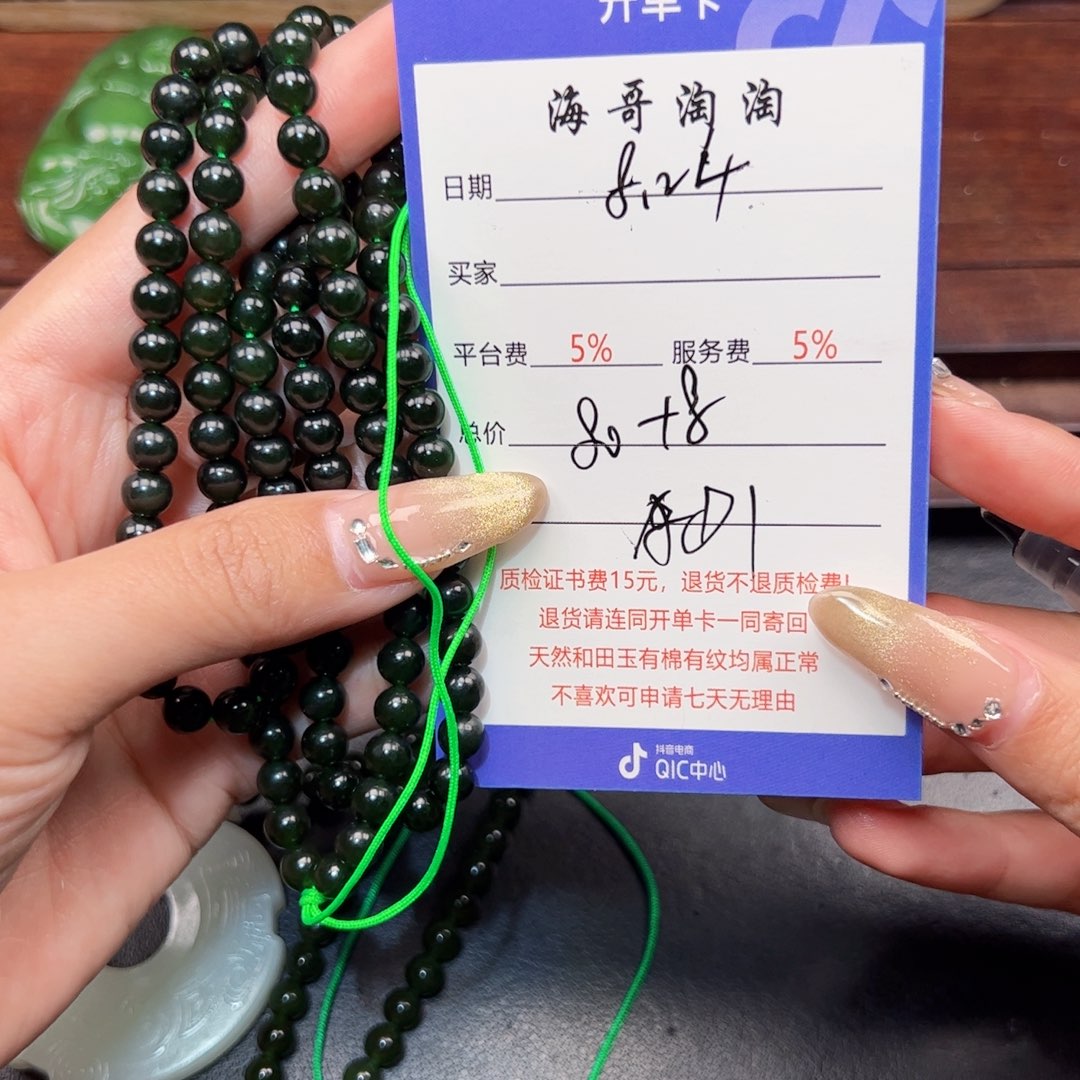 开单卡
海哥淘淘
日期 8.24
买家
平台费 5% 服务费 5%
总价 80+8
质检证书费15元，退货不退质检费！
退货请连同开单卡一同寄回
天然和田玉有棉有纹均属正常
不喜欢可申请七天无理由
抖音电商
QIC中心